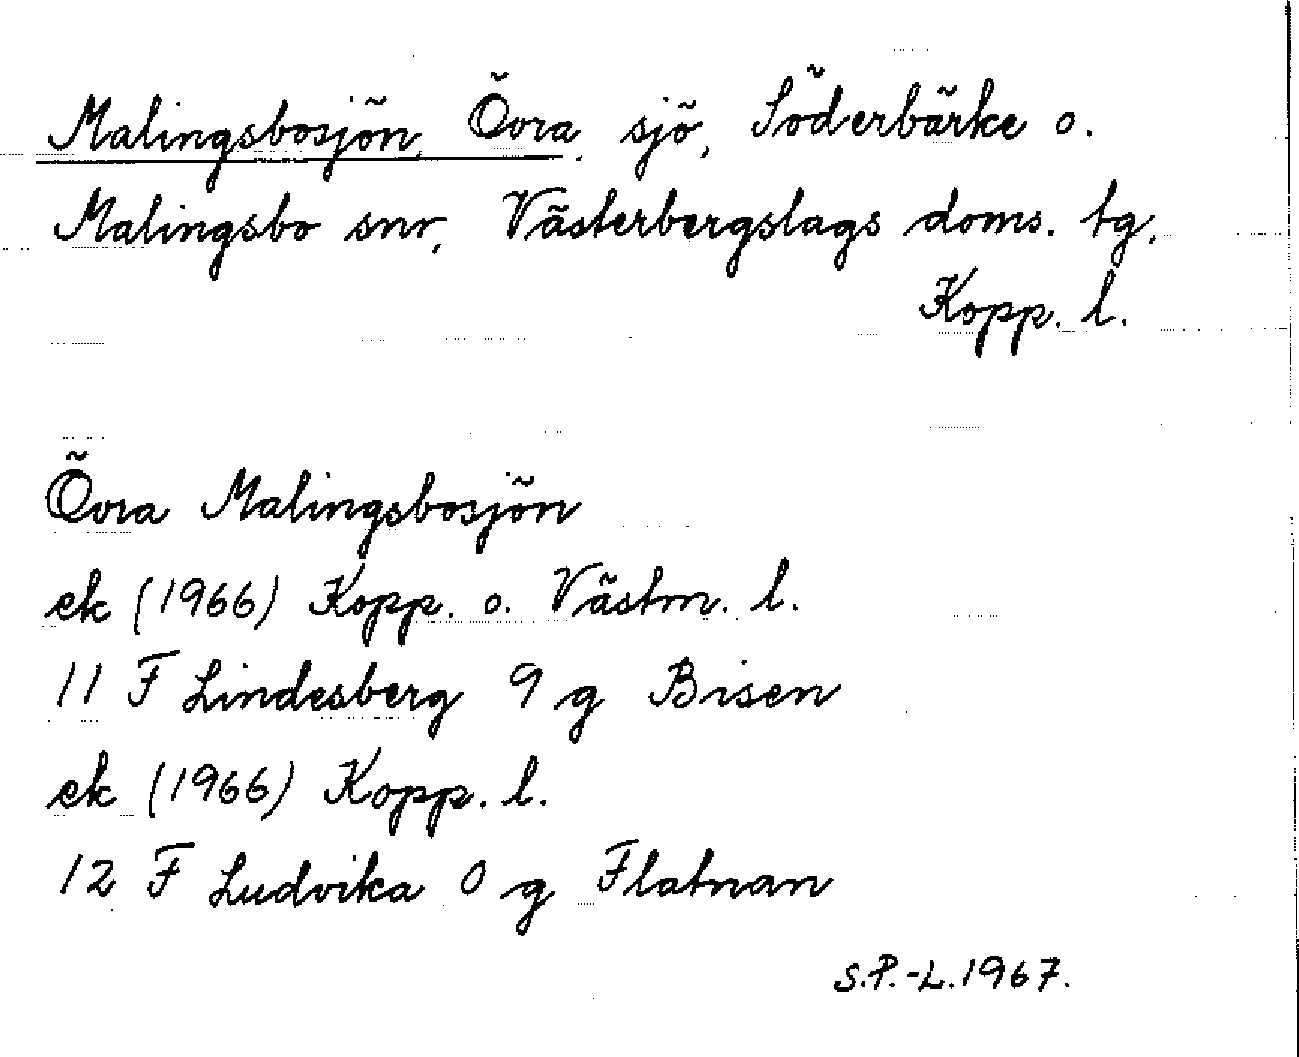 Malingsbosjön, Övra, sjö, Söderbärke o.
Malingsbo snr, Västerbergslags doms. tg,
Kopp. l.
Övra Malingsbosjön
ek (1966) Kopp. o. Västm. l.
11 F Lindesberg 9 g Bisen
ek (1966) Kopp. l.
12 F Ludvika 0 g Flatnan
S.P.-L. 1967.